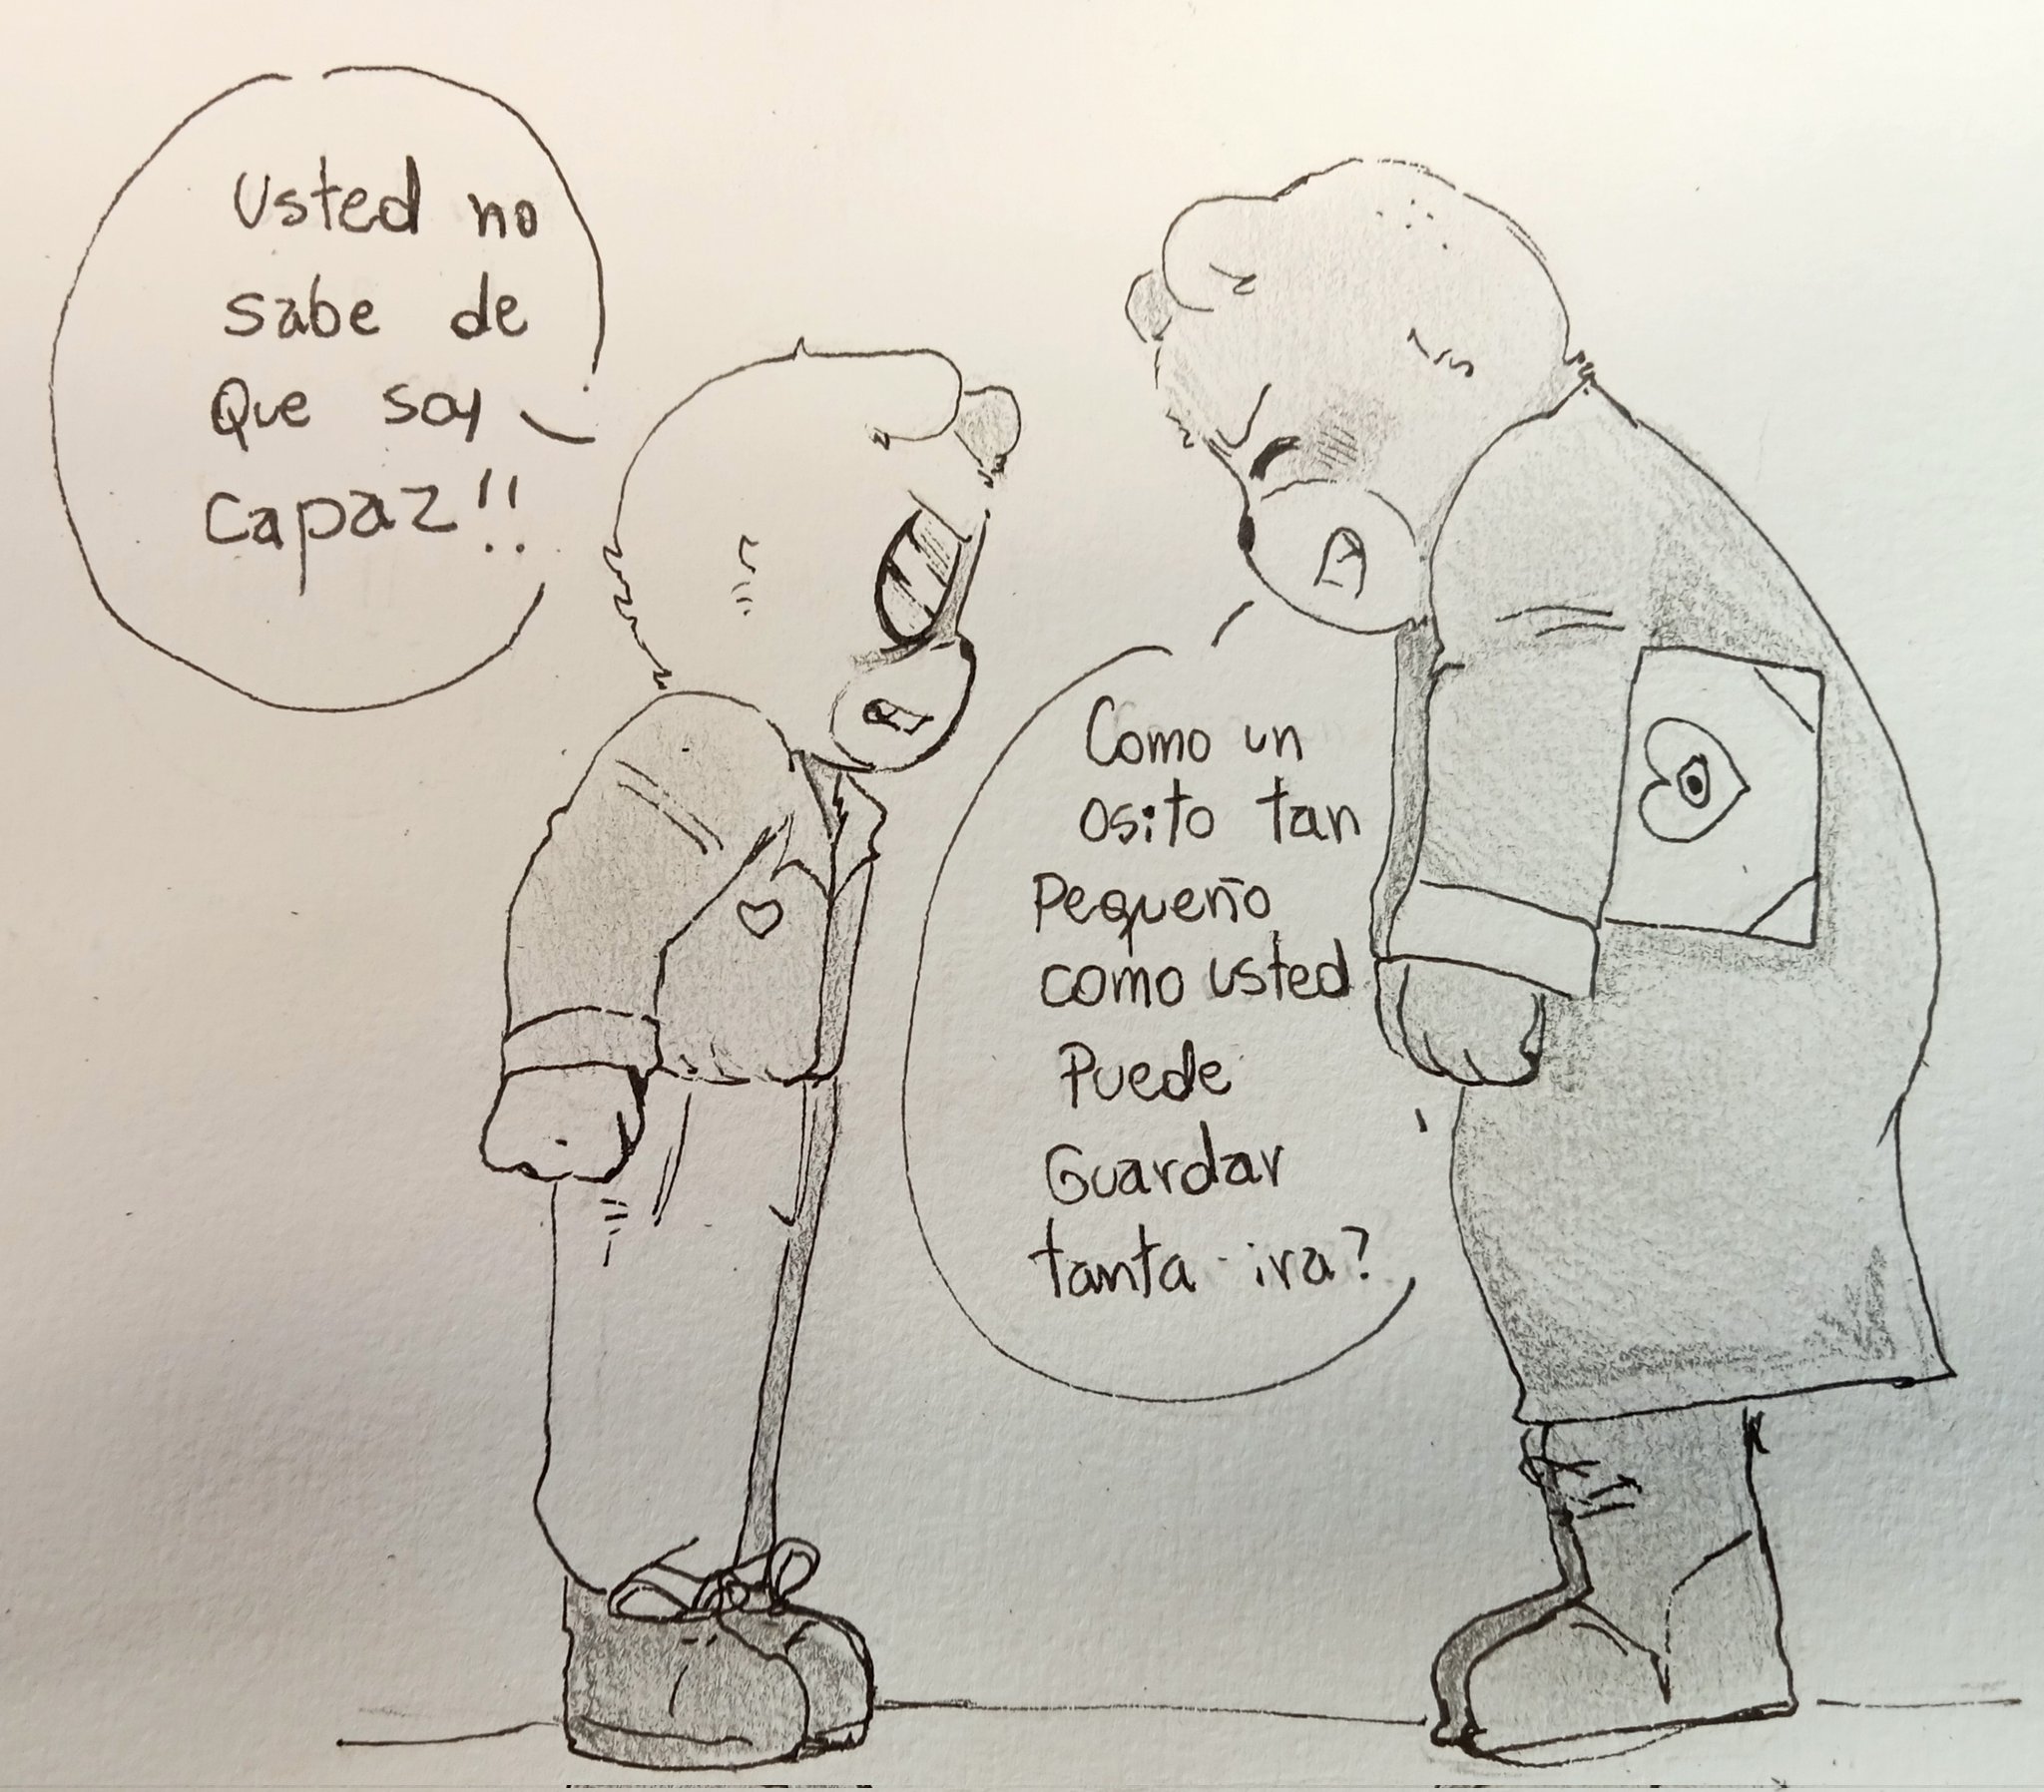 Usted no
sabe de
Que soy
capaz!!
Como un
osito tan
Pequeño
como usted
Puede
Guardar
tanta ira?